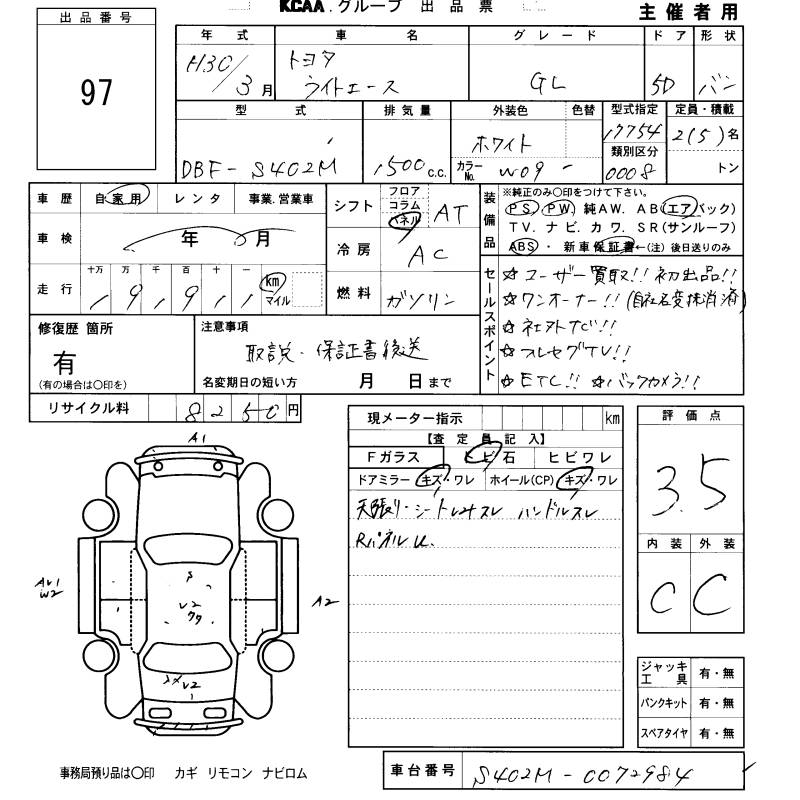 KCAA.グループ 出品票
主催者用
出品番号
97
年式 車名 グレード ドア 形状
H30/3月 トヨタ ライトエース GL 5D バン
型式 排気量 外装色 色替 型式指定 定員・積載
DBF-S402M 1,500c.c. ホワイト カラーNo. W09 17754 2(5)名
類別区分 0008 トン
車歴 自家用 レンタ 事業.営業車
車検 年 月
走行 十万 万 千 百 十 一 km マイル
1 9 1 9 1 1
シフト フロア コラム パネル AT
冷房 AC
燃料 ガソリン
装備品 ※純正のみ○印をつけて下さい。
PS. PW. 純AW. AB(エアバック)
TV. ナビ. カワ. SR(サンルーフ)
ABS ・ 新車保証書←(注) 後日送りのみ
セールスポイント
☆ユーザー買取!! 初出品!!
☆ワンオーナー!!(自社名変抹消済)
☆社外ナビ!!
☆フルセグTV!!
☆ETC!! ☆バックカメラ!!
修復歴 箇所
有
(有の場合は○印を)
注意事項
取説・保証書後送
名変期日の短い方 月 日まで
リサイクル料 8250円
現メーター指示 km
【査定員記入】
Fガラス ヒビ石 ヒビワレ
ドアミラー キズ・ワレ ホイール(CP) キズ・ワレ
天張り・シート ハンドルスレ
RパネルU.
評価点
3.5
内装 外装
C C
A1
AU1
W2
A2
S
U2
クケ
U2
ジャッキ工具 有・無
パンクキット 有・無
スペアタイヤ 有・無
事務局預り品は○印 カギ リモコン ナビロム
車台番号 S402M-0072984